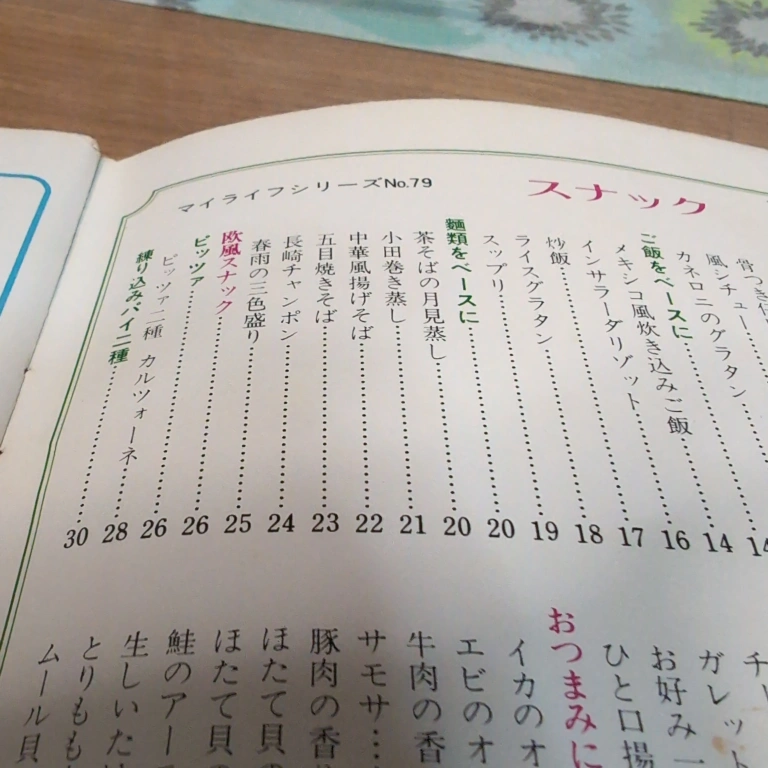 マイライフシリーズNo.79
スナック
骨つき
風シチュー
カネロニのグラタン
ご飯をベースに……14
メキシコ風炊き込みご飯……14
インサラーダリゾット……16
炒飯……17
ライスグラタン……18
スップリ……19
麵類をベースに……20
茶そばの月見蒸し……20
小田巻き蒸し……21
中華風揚げそば……22
五目焼きそば……23
長崎チャンポン……24
春雨の三色盛り……25
欧風スナック……26
ピッツァ……26
ピッツァ二種 カルツォーネ……28
練り込みパイ二種……30
チ
ガレット
お好み一
ひと口揚
おつまみに
イカのオ
エビのオ
牛肉の香
サモサ……
豚肉の香り
ほたて貝の
ほたて貝の
鮭のアー
生しいたけ
とりもも
ムール貝